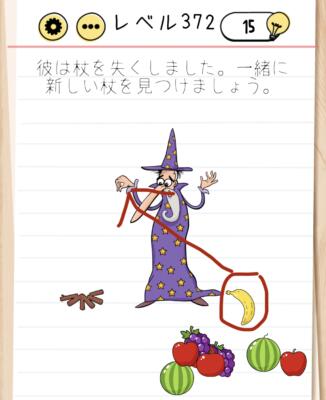 レベル372
15
彼は杖を失くしました。一緒に
新しい杖を見つけましょう。